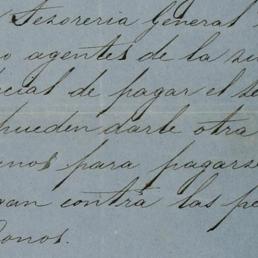 Tesoreria General
o agentes de la su
cial de pagar el se
pueden darle otra
enos para pagarse
gan contra las pe
Bonos.